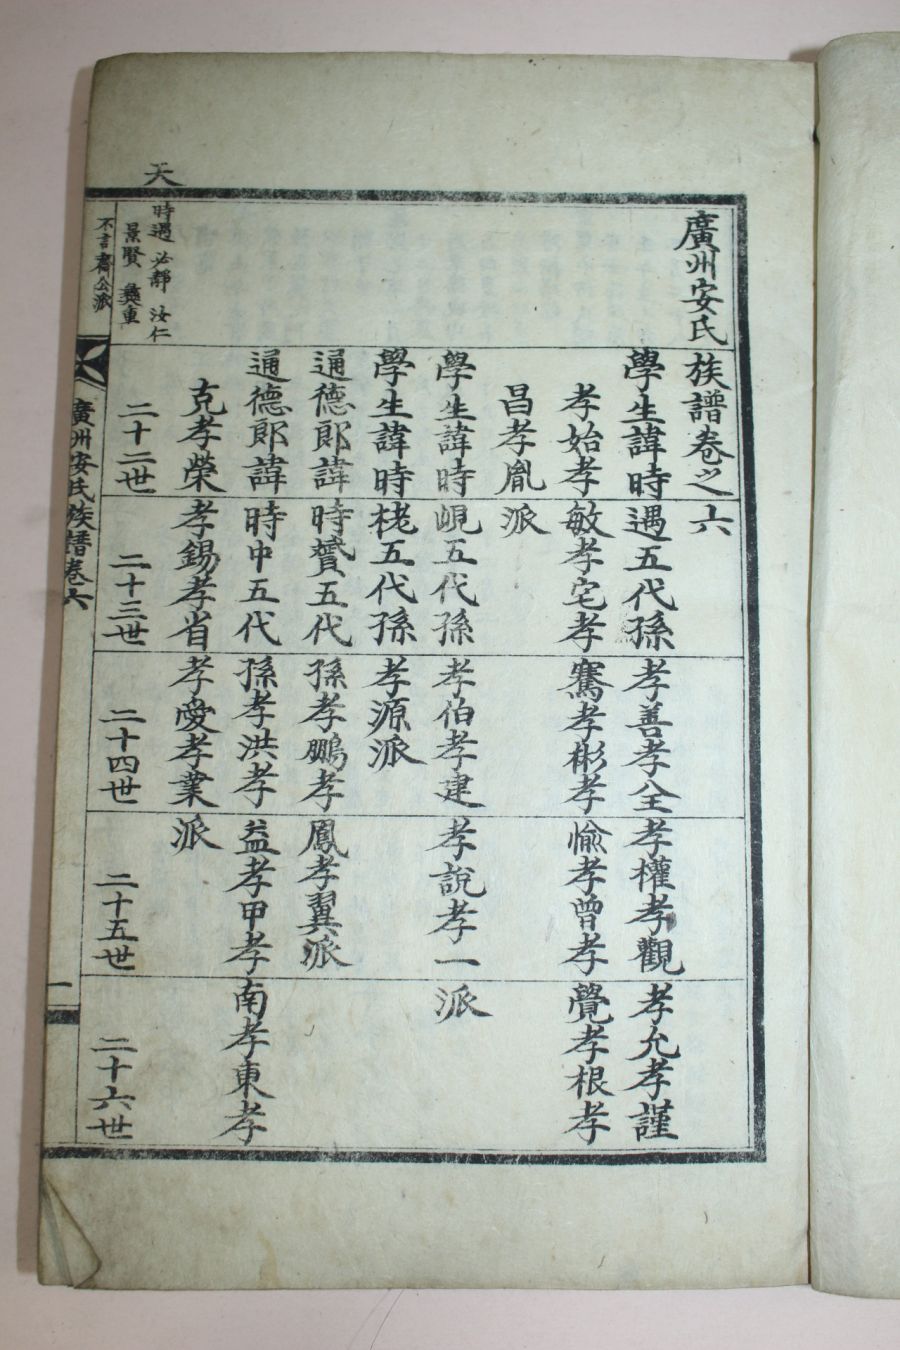 廣州安氏族譜卷之六
學生諱時遇五代孫孝善孝全孝權孝觀孝允孝謹
孝始孝敏孝宅孝騫孝彬孝愉孝曾孝覺孝根孝
昌孝胤派
學生諱時峴五代孫孝伯孝建孝說孝一派
學生諱時栳五代孫孝源派
通德郎諱時贇五代孫孝鵬孝鳳孝翼派
通德郎諱時中五代孫孝洪孝益孝甲孝南孝東孝
克孝榮孝錫孝省孝愛孝業派
天
時遇 必靜 汝仁
景賢 彝重
不言齋公派
二十二世
二十三世
二十四世
二十五世
二十六世
廣州安氏族譜卷六
一